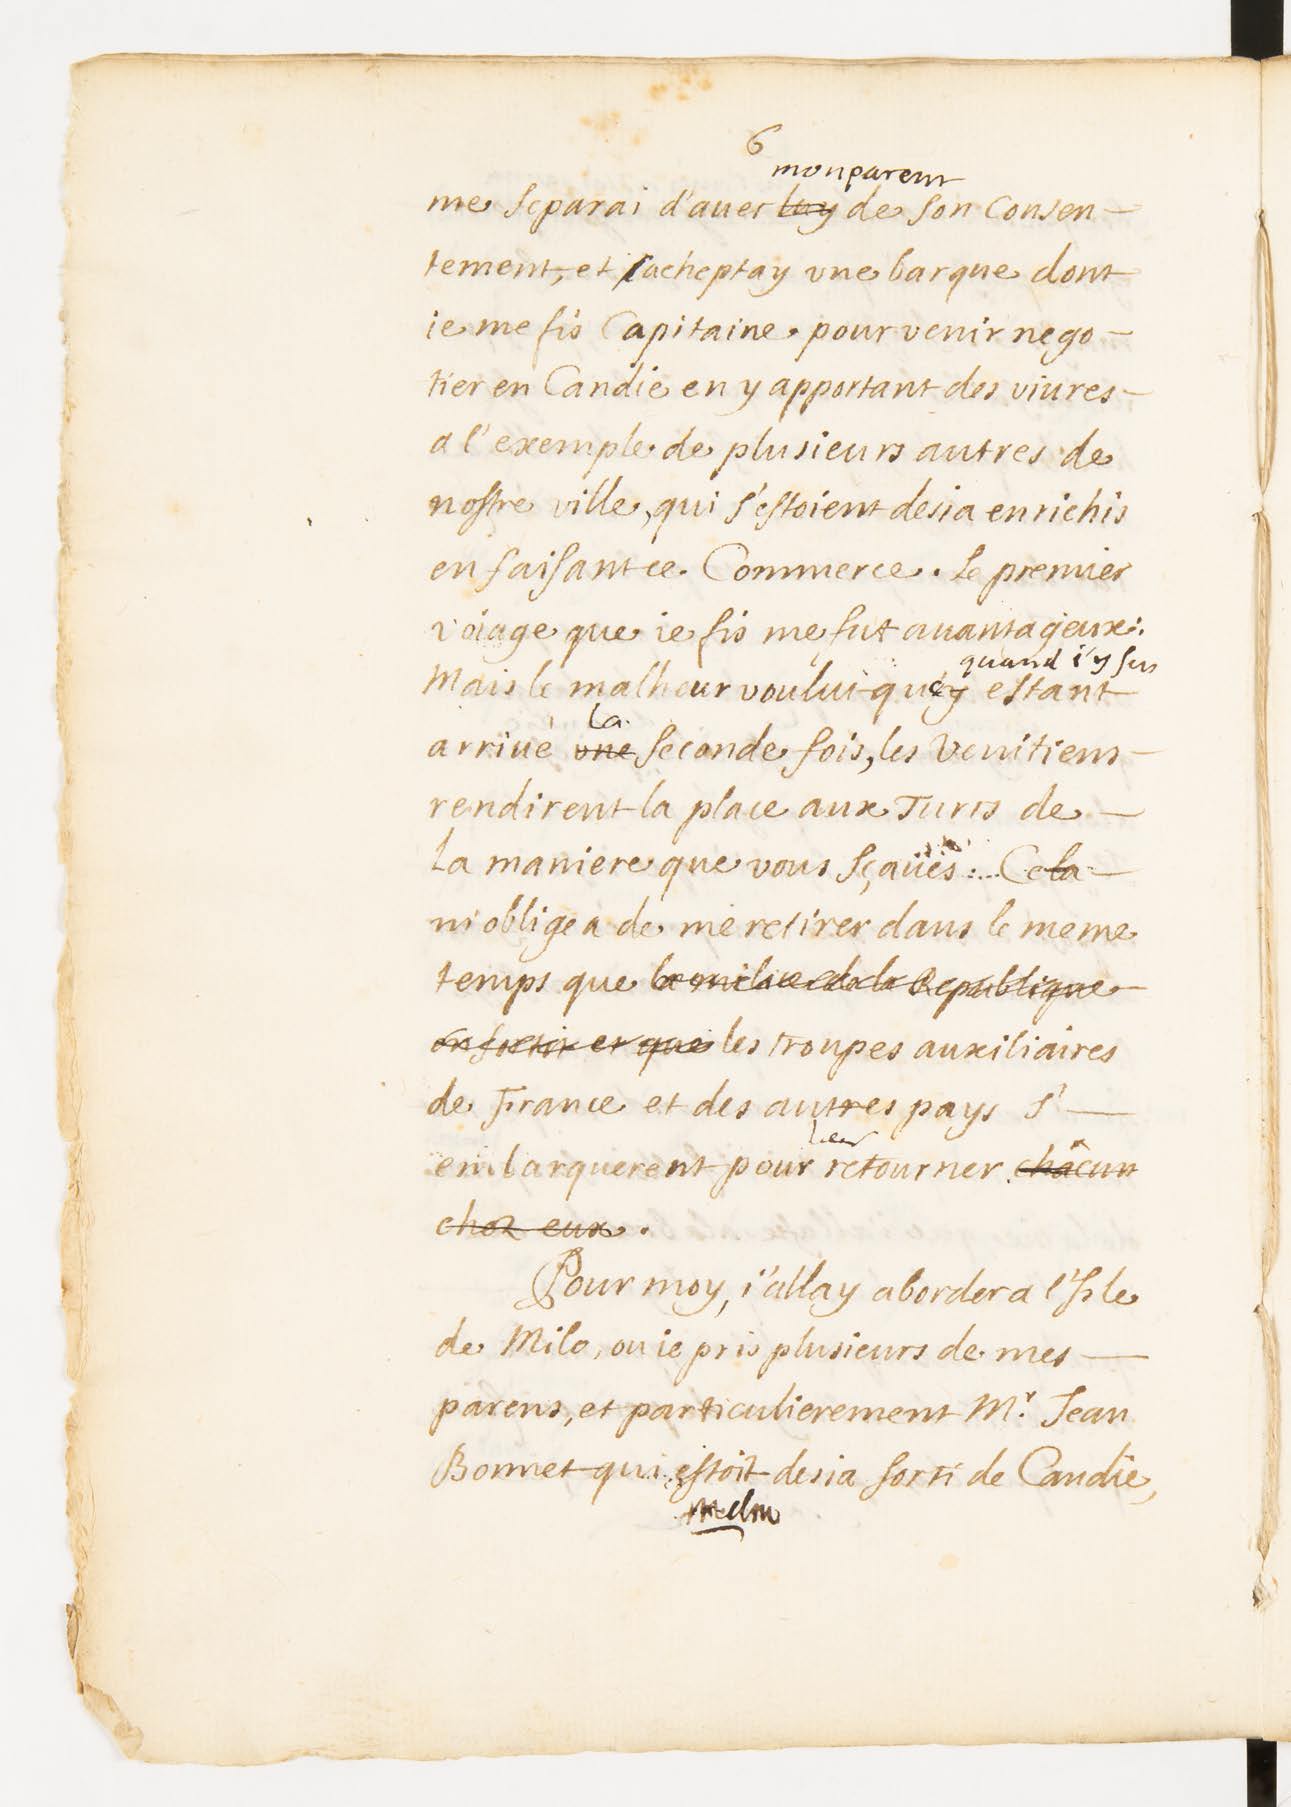 6
mon parent
me separai d'avec luy de son consen-
tement, et j'acheptay vne barque dont
ie me fis Capitaine pour venir nego-
tier en Candie en y apportant des viures
a l'exemple de plusieurs autres de
nostre ville, qui s'estoient desia enrichis
en faisant ce Commerce. Le premier
voiage que ie fis me fut auantageux:
quand i'y fus
Mais le malheur voulut qu'y estant
la
arriué vne seconde fois, les Venitiens
rendirent la place aux Turcs de
la maniere que vous sçaués: Cela
m'obligea de me retirer dans le meme
temps que la milice de la Republique
en sortit et que les troupes auxiliaires
de France et des autres pays s'
embarquerent pour retourner châcun
chez eux.
Pour moy, i'allay aborder a l'Isle
de Milo, ou ie pris plusieurs de mes
parens, et particulierement Mr. Jean
Bonnet qui estoit desia sorti de Candie,